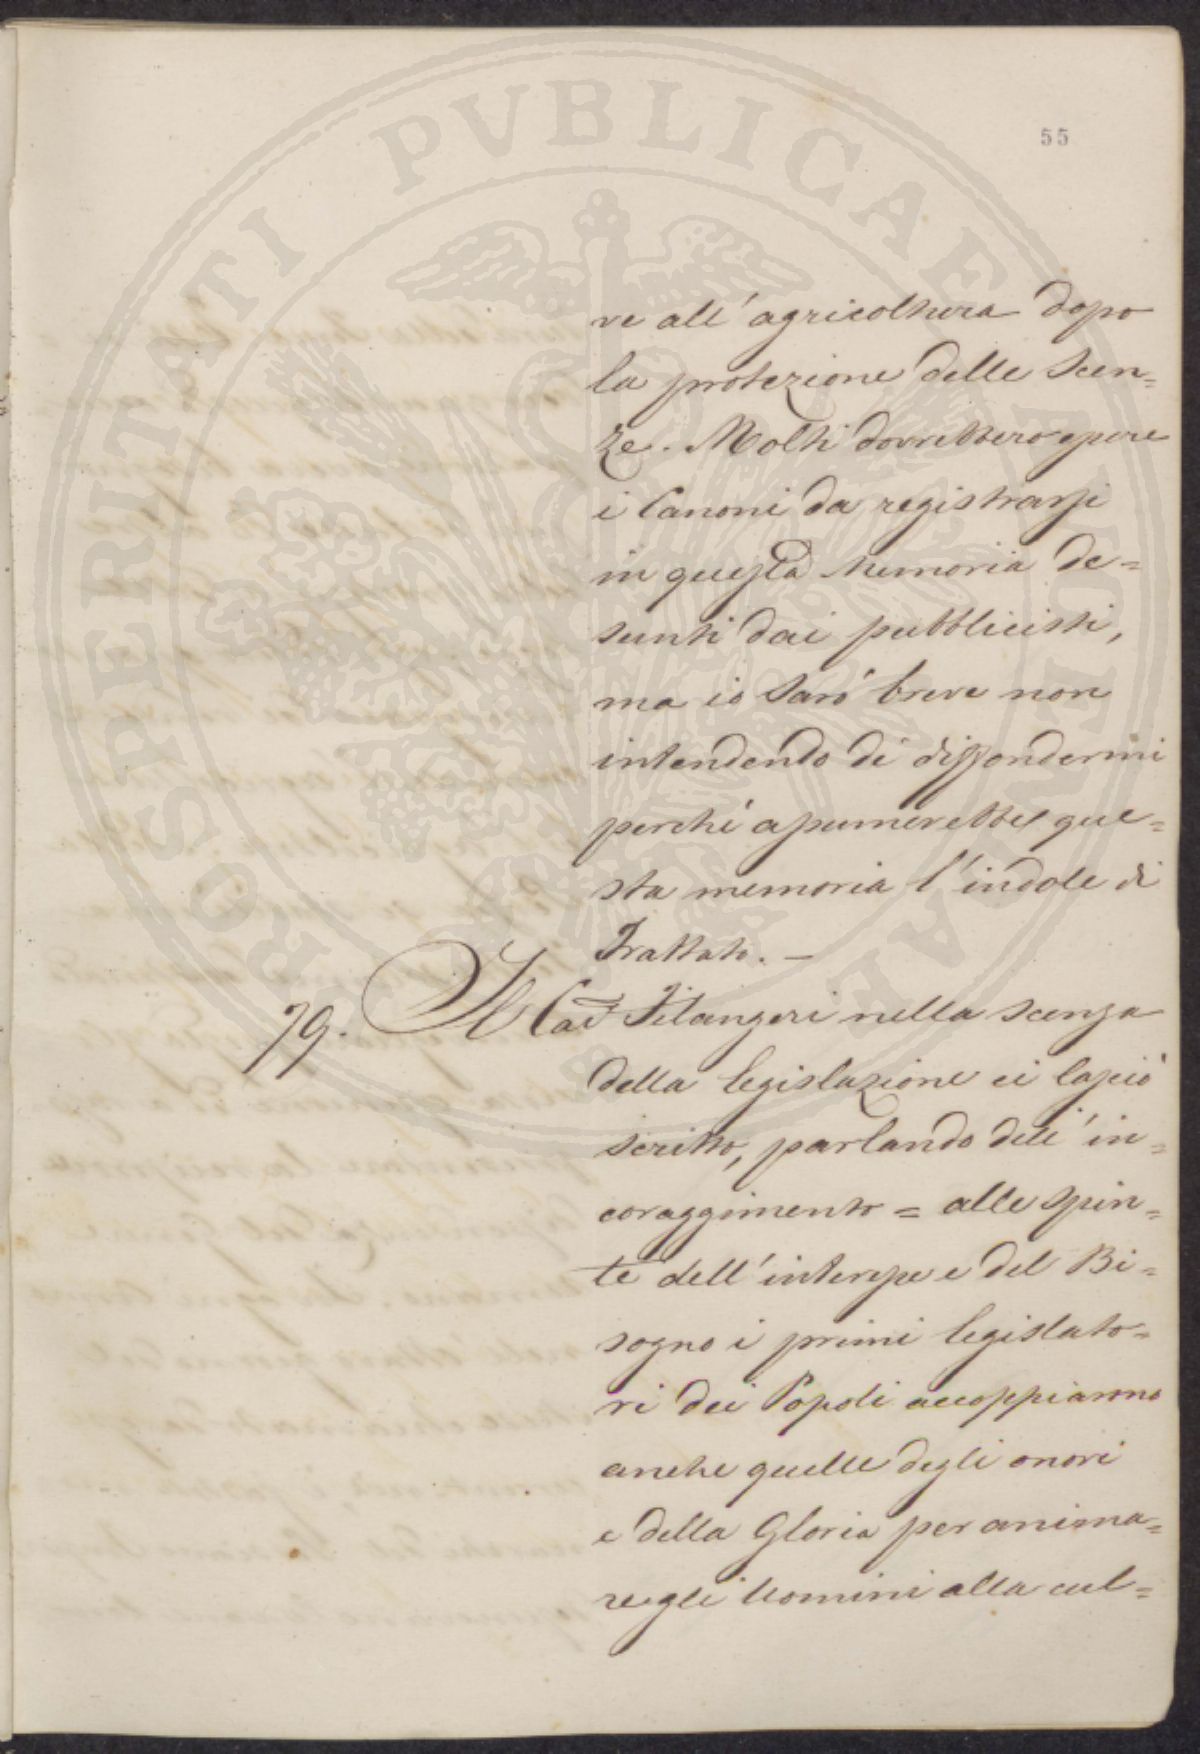 55
PROSPERITATI PVBLICAE AVGENDAE
ve all'agricoltura dopo
la protezione delle Scen=
ze. Molti dovrebbero essere
i Canoni da registrarsi
in questa Memoria de=
sunti dai pubblicisti,
ma io sarò breve non
intendendo di diffondermi
perché assumerebbe que=
sta memoria l'indole di
Trattato. —
79. Il Cav Filangeri nella scenza
della legislazione ci lasciò
scritto, parlando dell'in=
coraggimento = alle spin=
te dell'interesse e del Bi=
sogno i primi legislato=
ri dei Popoli accoppiarono
anche quelle degli onori
e della Gloria per anima=
re gli Uomini alla cul=